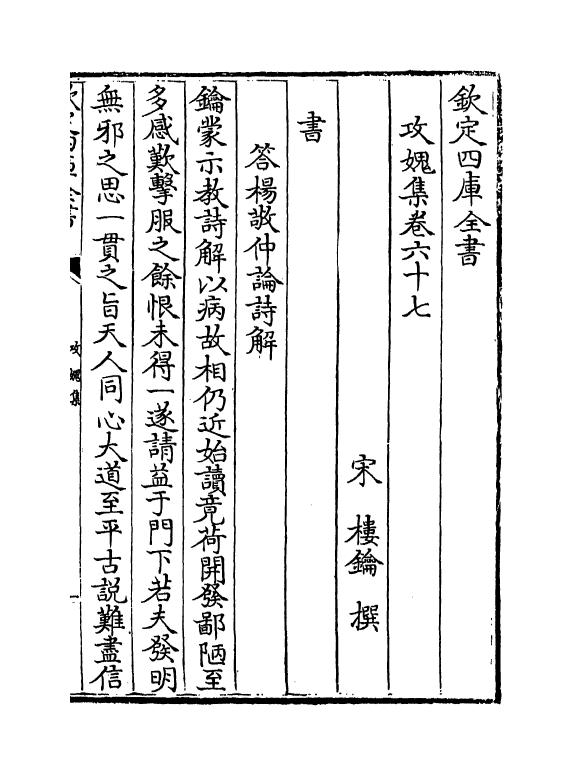 欽定四庫全書
攻媿集卷六十七
宋 樓鑰 撰
書
答楊敬仲論詩解
鑰蒙示教詩解以病故相仍近始讀竟荷開發鄙陋至
多感歎擊服之餘恨未得一遂請益于門下若夫發明
無邪之思一貫之旨天人同心大道至平古説難盡信
攻媿集
一